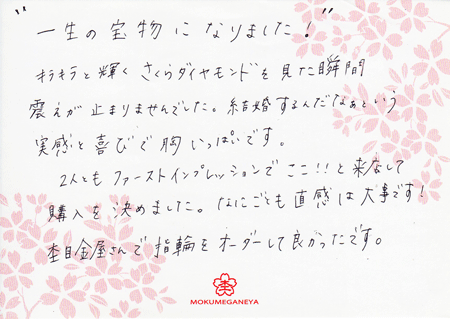 "一生の宝物になりました!"
キラキラと輝くさくらダイヤモンドを見た瞬間
震えが止まりませんでした。結婚するんだなぁという
実感と喜びで胸いっぱいです。
2人ともファーストインプレッションでここ!!と来店して
購入を決めました。なにごとも直感は大事です!
杢目金屋さんで指輪をオーダーして良かったです。
杢
MOKUMEGANEYA